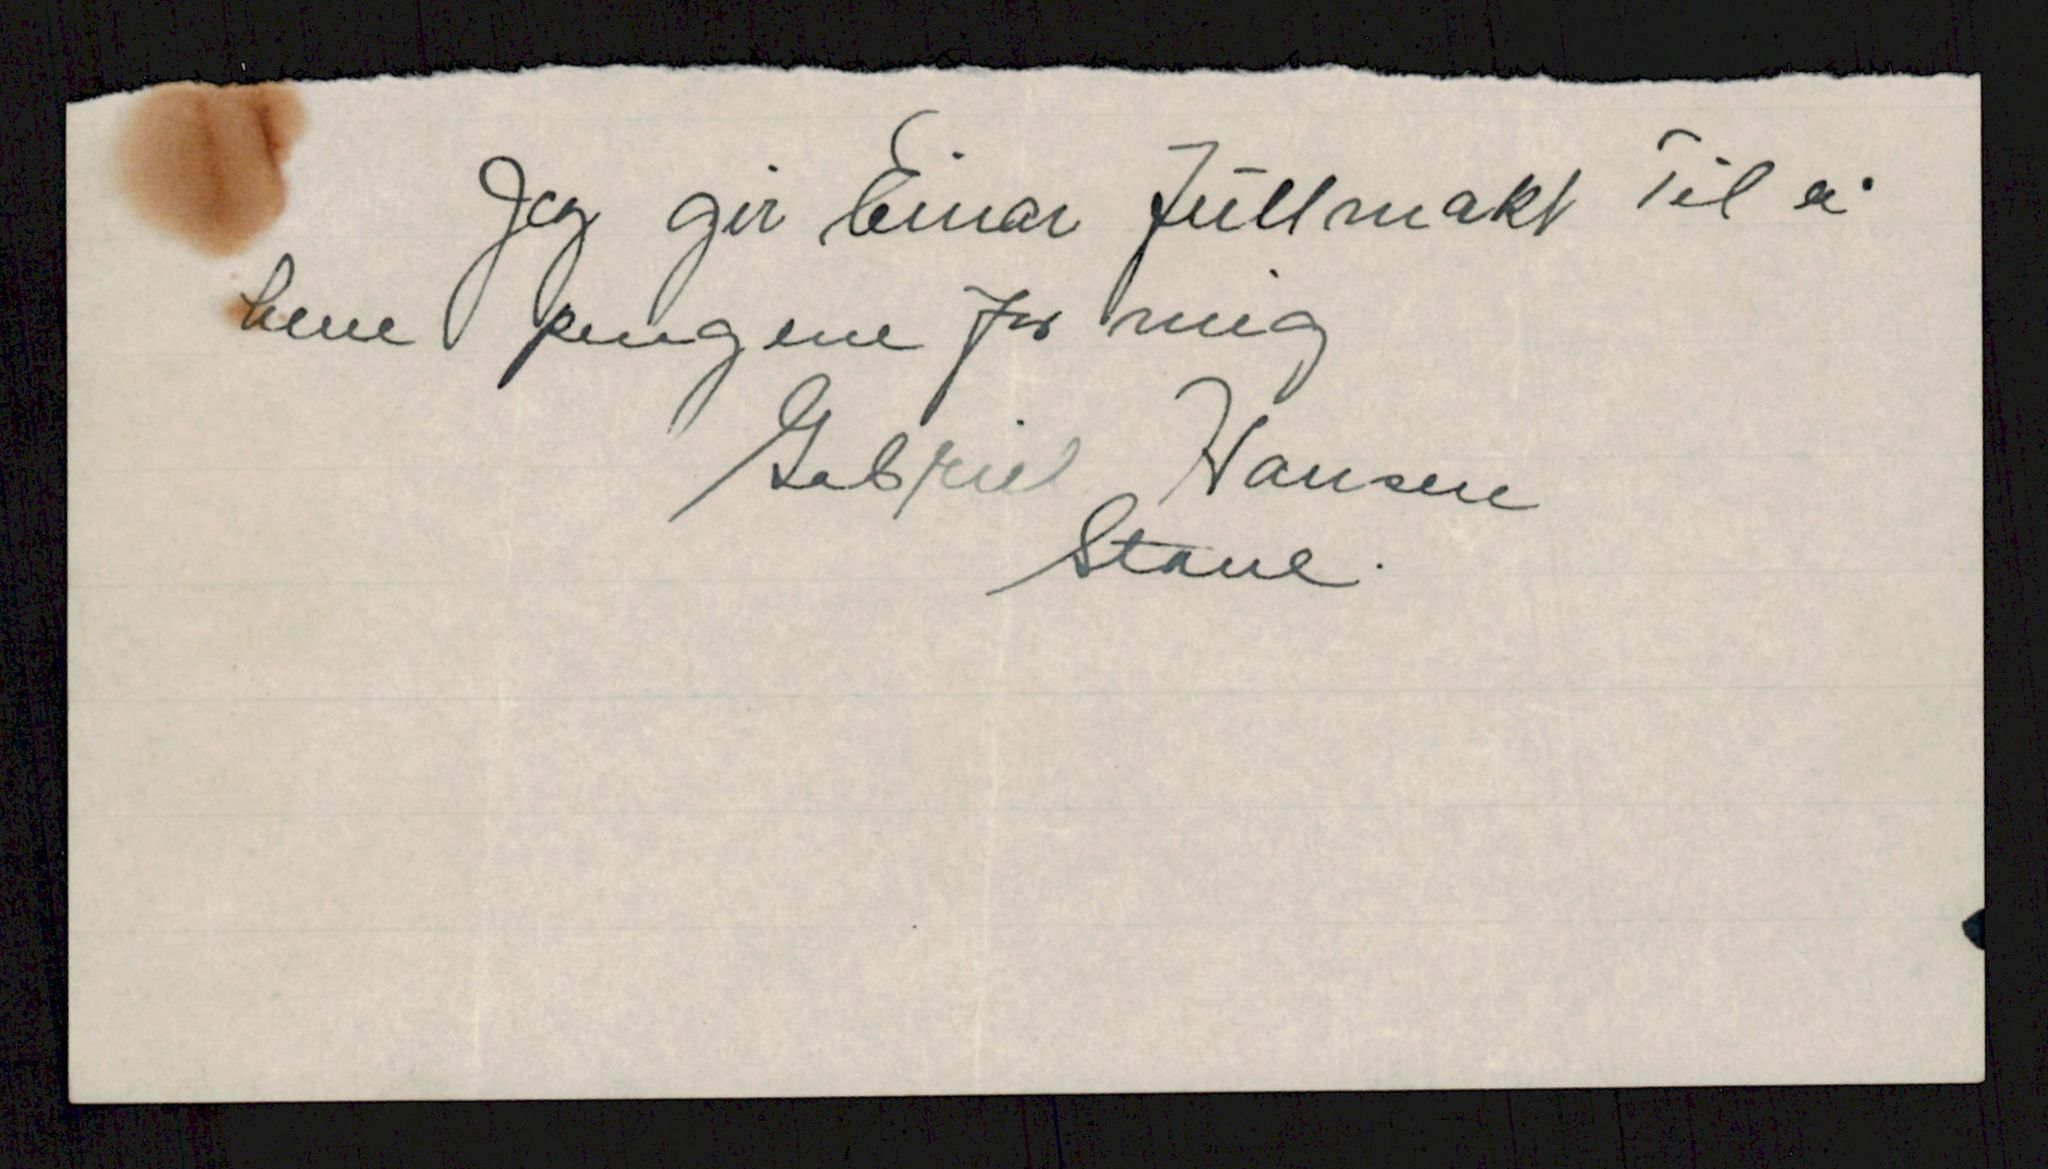 Jeg gir Einar fullmakt Til å
heve pengene for mig
Gabriel Hansen